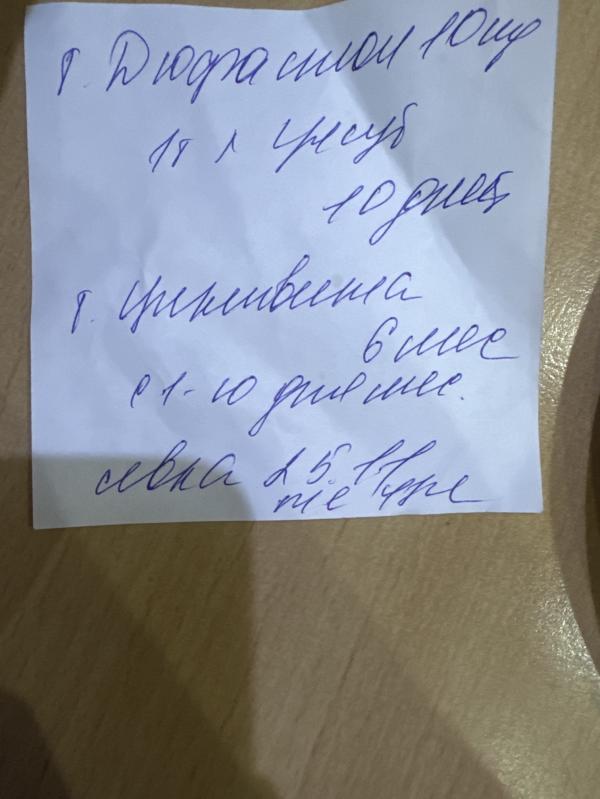 т. Дюфастон 10мг
1т
10 дней
т. Циклвита
6 мес
с 1-го дня мес.
явка 25.11